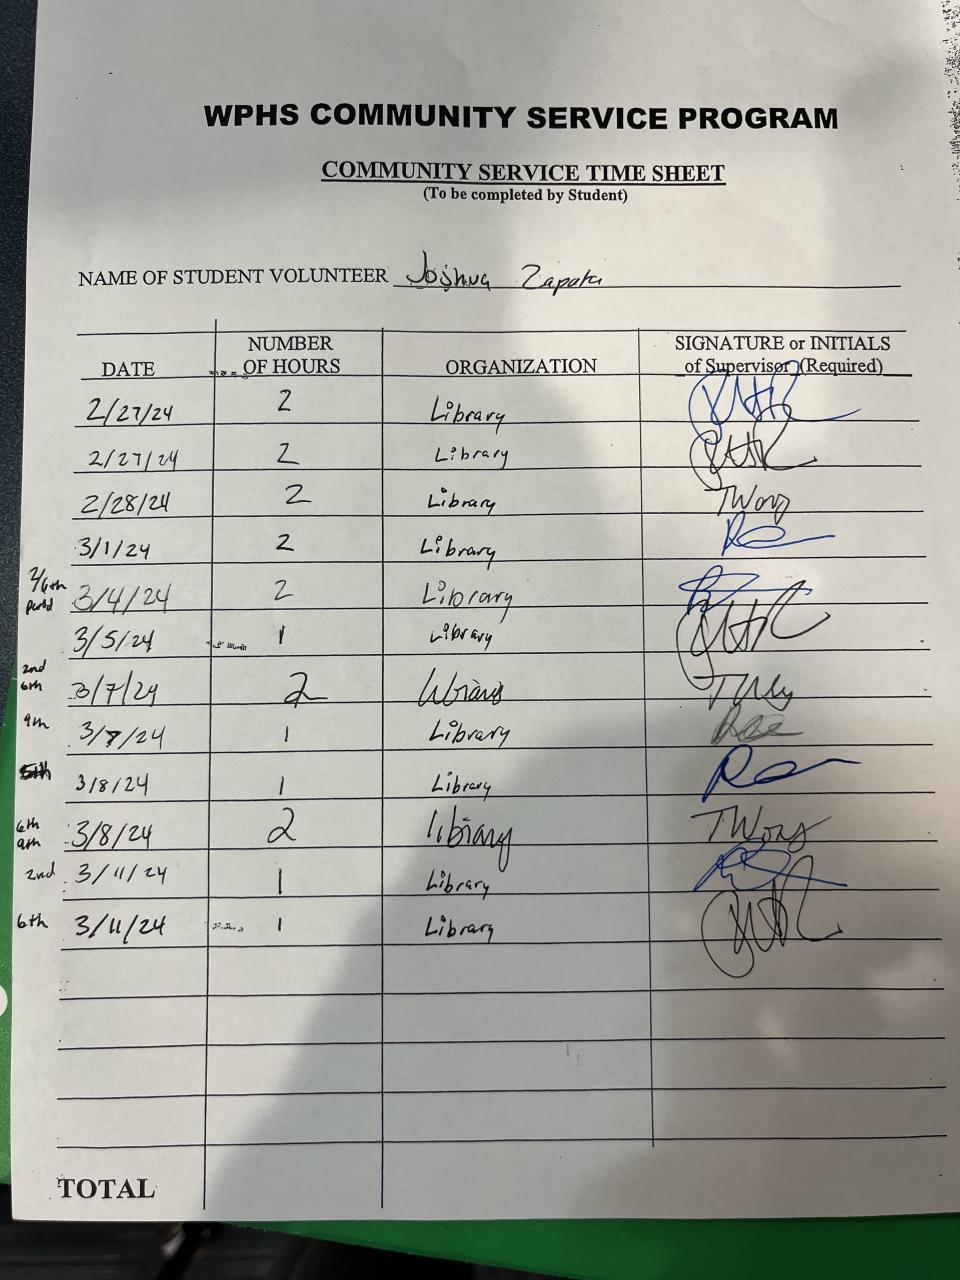 WPHS COMMUNITY SERVICE PROGRAM
COMMUNITY SERVICE TIME SHEET
(To be completed by Student)
NAME OF STUDENT VOLUNTEER Joshua Zapata
DATE NUMBER OF HOURS ORGANIZATION SIGNATURE or INITIALS of Supervisor (Required)
2/27/24 2 Library
2/27/24 2 Library
2/28/24 2 Library TWong
3/1/24 2 Library
2/6th period 3/4/24 2 Library
3/5/24 1 Library
2nd 6th 3/7/24 2 library
9th 3/7/24 1 Library
5th 3/8/24 1 Library
6th 9th 3/8/24 2 library TWong
2nd 3/11/24 1 Library
6th 3/11/24 1 Library
TOTAL